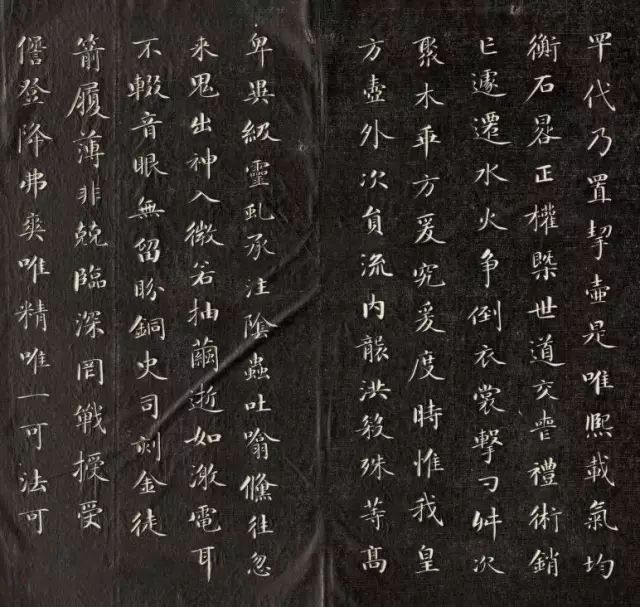 罕代乃置挈壺是唯熙載氣均
衡石晷正權槩世道交喪禮術銷
亡遽還水火争倒衣裳擊刁舛次
聚木乖方爰究爰度時惟我皇
方壺外次員流内襲洪殺殊等髙
卑異級靈虬承注陰蟲吐噏儵往忽
来鬼出神入微若抽繭逝如激電耳
不輟音眼無留眄銅史司刻金徒
箭履薄非兢臨深罔戰授受
諐登降弗爽唯精唯一可法可